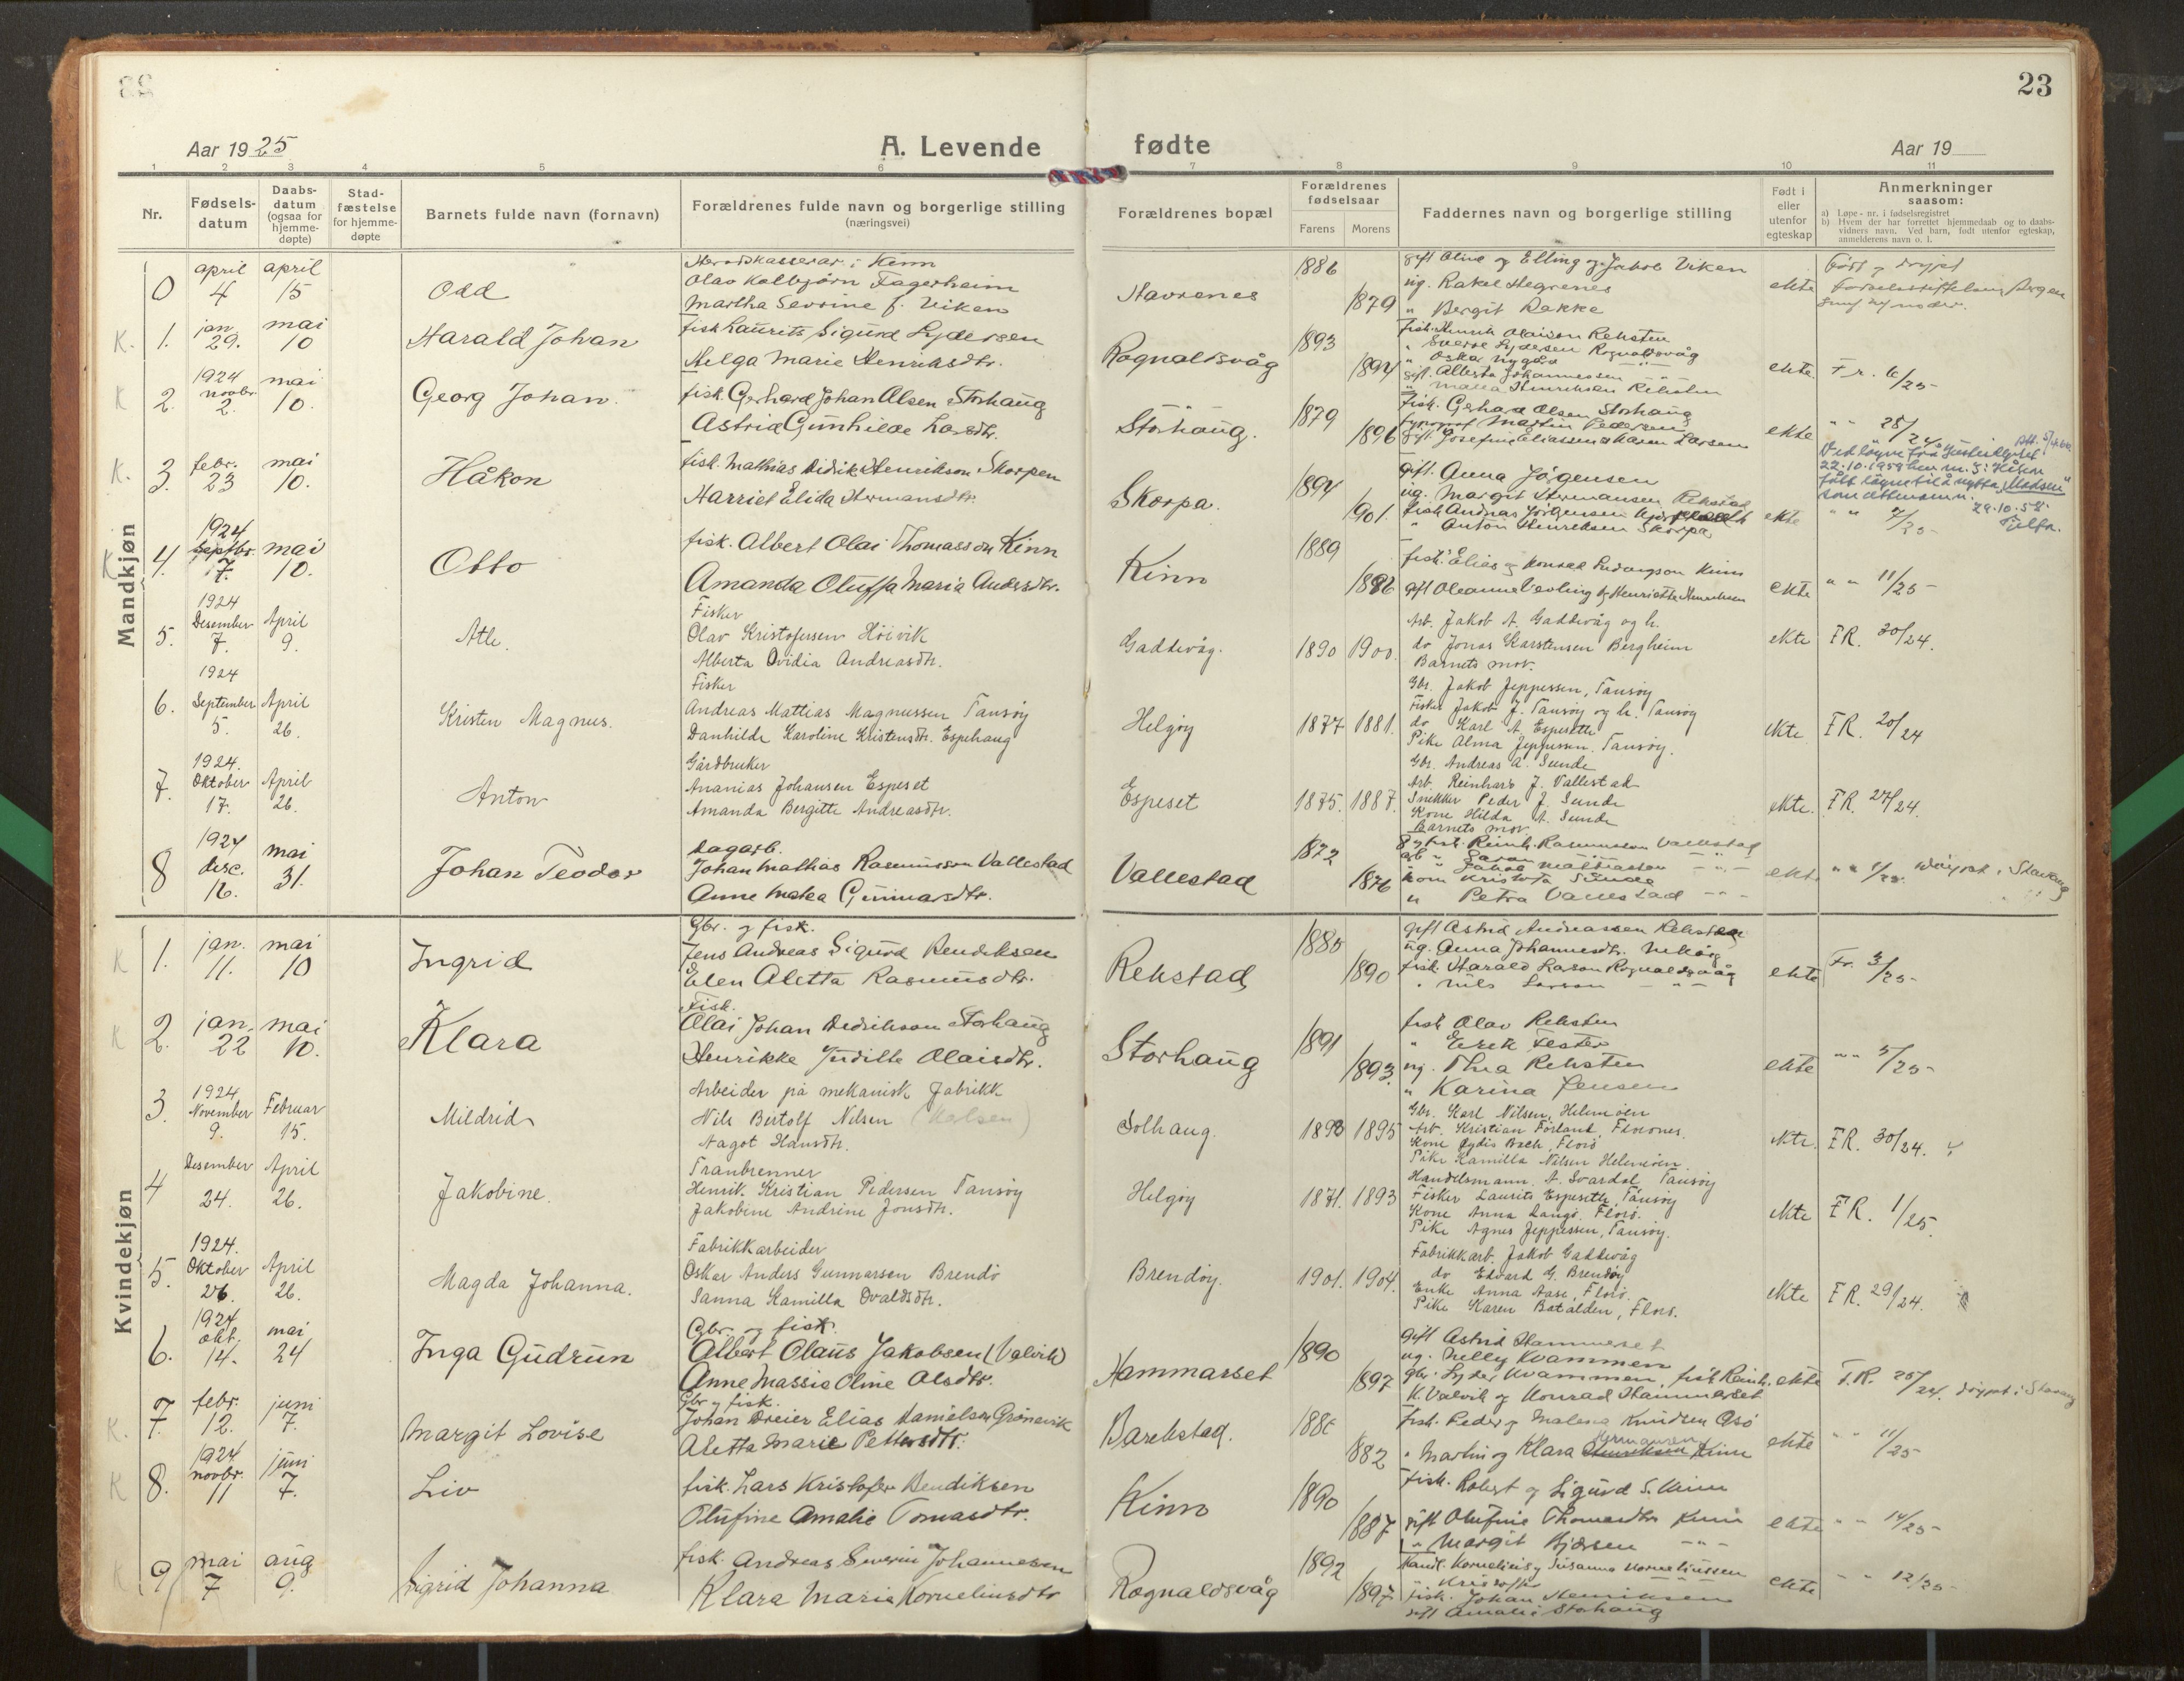 23
Aar 1925
A. Levende fødte
Aar 19
1 2 3 4 5 6 7 8 9 10 11
Nr.
Fødsels-
datum
Daabs-
datum
(ogsaa for
hjemme-
døpte)
Stad-
fæstelse
for hjemme-
døpte
Barnets fulde navn (fornavn)
Forældrenes fulde navn og borgerlige stilling
(næringsvei)
Forældrenes bopæl
Forældrenes
fødselsaar
Farens Morens
Faddernes navn og borgerlige stilling
Født i
eller
utenfor
egteskap
Anmerkninger
saasom:
a) Løpe-nr. i fødselsregistret
b) Hvem der har forrettet hjemmedaab og to daabs-
vidners navn. Ved barn, født utenfor egteskap,
anmelderens navn o. l.
Mandkjøn
0 april 4 april 15 Odd
i Kinn
Olav Kolbjørn Fagerheim
Martha Sevrine f. Viken
Havrenes 1886 1879
gift Oline og Elling og Jakob Viken
ug. Rakel Hegrenes
" Bergit Rekke
ekte
K. 1. jan. 29. mai 10 Harald Johan
fisk. Laurits Sigurd Lydersen
Helga Marie Henriksdtr.
Rognaldsvåg 1893 1894
fisk. Henrik Olaison Rehsten
" Sverre Lydersen Rognaldsvåg
" Oskar Nygård
gift. Alberta Johannessen
Henriksen Rehsten
ekte. F.r. 6/25
K 2. 1924 novbr. 2. mai 10. Georg Johan.
fisk. Gerhard Johan Olsen Storhaug
Astrid Gunhilde Larsdtr.
Storhaug. 1879 1896
fisk. Gerhard Olsen Storhaug
Martin Pedersen
gift. Josefine Eliassen Karen Larsen
ekte " " 25/24
K. 3. febr. 23 mai 10. Håkon
fisk. Mathias Didrik Henrikson Skorpen
Harriet Elida Hermansdtr.
Skorpa. 1894 1901.
gift. Anna Jørgensen
ug. Margit Hermansen Rekstad
fisk. Andreas Jørgensen
" Anton Henriksen Skorpa
ekte " " 7/25
22.10.1959
som etternamn.
29.10.58.
K 4. 1924 septbr. 7. mai 10. Otto
fisk. Albert Olai Thomasson Kinn
Amanda Oluffa Maria Andersdtr.
Kinn 1889 1886
fisk. Elias og Konrad Kinn
gift Oleanne og Henriette Henriksen
ekte " " 11/25
5. 1924 Desember 7. April 9. Atle.
Fisker
Olav Kristofersen Höivik
Alberta Ovidia Andreasdtr.
Gaddevåg. 1890 1900.
Arb. Jakob A. Gaddevåg og h.
do Jonas Karstensen Bergheim
Barnets mor.
ekte F.R. 30/24.
6. 1924 September 5. April 26. Kristen Magnus.
Fisker
Andreas Mattias Magnussen Tansöy
Danhilde Karoline Kristensdtr. Espehaug
Helgöy 1877 1881.
Gbr. Jakob Jeppesen, Tansöy
Fisker Jakob J. Tansöy og h. Tansöy
do Karl A. Espesette
Pike Alma Jeppesen. Tansöy.
ekte F.R. 20/24
7. 1924. Oktober 17. April 26. Anton
Gårdbruker
Ananias Johansen Espeset
Amanda Bergitte Andreasdtr.
Espeset 1875. 1887.
Gbr. Andreas A. Sunde
Arb. Reinhard J. Vallestad
Snekker Peder J. Sunde
Kone Hilda A. Sunde
Barnets mor.
ekte. F.R. 27/24.
8 1924 desc. 16. mai 31. Johan Teodor
Dagarb.
Johan Mathias Rasmusson Vallestad
Anne Gunnarsdtr.
Vallestad 1872 1876
Reinh. Rasmusson Vallestad
Jakob Mathiassen
kone Kristofa Sunde
" Petra Vallestad
ekte " "
Kvindekjøn
K 1. jan. 11. mai 10 Ingrid
Gbr. og fisk.
Jens Andreas Sigurd Bendiksen
Elen Aletta Rasmusdtr.
Rekstad 1885 1890
gift Astrid Andreassen Rekstad
ug. Anna Johannesdtr.
fisk. Harald Larson Rognaldsvåg
" Nils Larson
ekte Fr. 3/25
K 2. jan. 22 mai 10. Klara
Fisk.
Olai Johan Dedrikson Storhaug
Henrikke Judithe Olaisdtr.
Storhaug 1891 1893.
fisk Olav Rehsten
" Erik Fester
ug. Thea Rehsten
" Karina Jensen
ekte " " 5/25
3. 1924 November 9. Februar 15. Mildrid
Arbeider på mekanisk fabrikk
Nils Bertolf Nilsen (Karlsen)
Nagot Hansdtr.
Solhaug. 1893 1895
Gbr. Karl Nilsen, Helmöen
Arb. Kristian Förland, Florones.
Kone Lydis Bech, Florö
Pike Kamilla Nilsen Helmöen
ekte. F.R. 30/24.
4 Desember 24. April 26. Jakobine.
Tranbrenner
Henrik Kristian Pedersen Tansöy
Jakobine Andrine Jonsdtr.
Helgöy 1871. 1893
Handelsmann. A. Svardal Tansöy
Fisker Laurits Espesette, Tansöy
Kone Anna Langö. Florö.
Pike Agnes Jeppesen, Tansöy.
ekte F.R. 1/25.
5. 1924. Oktober 26. April 26. Magda Johanna.
Fabrikkarbeider
Oskar Anders Gunnarsen Brendö
Sanna Kamilla Ovaldsdtr.
Brendöy. 1901. 1904.
Fabrikkarb. Jakob Gaddevåg
do Edvard G. Brendöy
Enke Anna Aase, Florö.
Pike Karen Batalden, Florö.
ekte F.R. 29/24.
6. 1924 okt. 14. mai 24 Inga Gudrun
Gbr. og fisk.
Albert Olaus Jakobsen (Valvik)
Anne Massie Oline Olsdtr.
Hammarset 1890 1897
gift Astrid Hammerset
ug. Nelly Kvammen
gbr. Lyder Kvammen, fisk Reinh.
K. Valvik og Konrad Hammerset
ekte F.R. 25/24. døypt i Stavang
K. 7. febr. 12. juni 7. Margit Lovise
Gbr og fisk.
Johan Dreier Elias Danielson Grønevik
Aletta Marie Pettersdtr.
Barekstad. 188 882
fisk. Peder og Malena Knudsen Asö
" Martin og Klara Hermansen Kinn
ekte " " 11/25
K 8. 1924. novbr. 11 juni 7. Liv
fisk. Lars Kristofer Bendiksen
Olufine Amalie Tomasdtr.
Kinn 1890 1887
fisk. Robert og Sigurd S. Kinn
gift Olufine Thomasdtr Kinn
" Margit
ekte " " 14/25
K 9 mai 7 aug 9. Sigrid Johanna
fisk. Andreas Severin Johannessen
Klara Maria Korneliusdtr
Rognaldsvåg 1892 1897
Handl. Kornelius og Susanna Korneliussen
" Kristoffer
fisk. Johan Henriksen
gift Amalie Storhaug
ekte " " 12/25